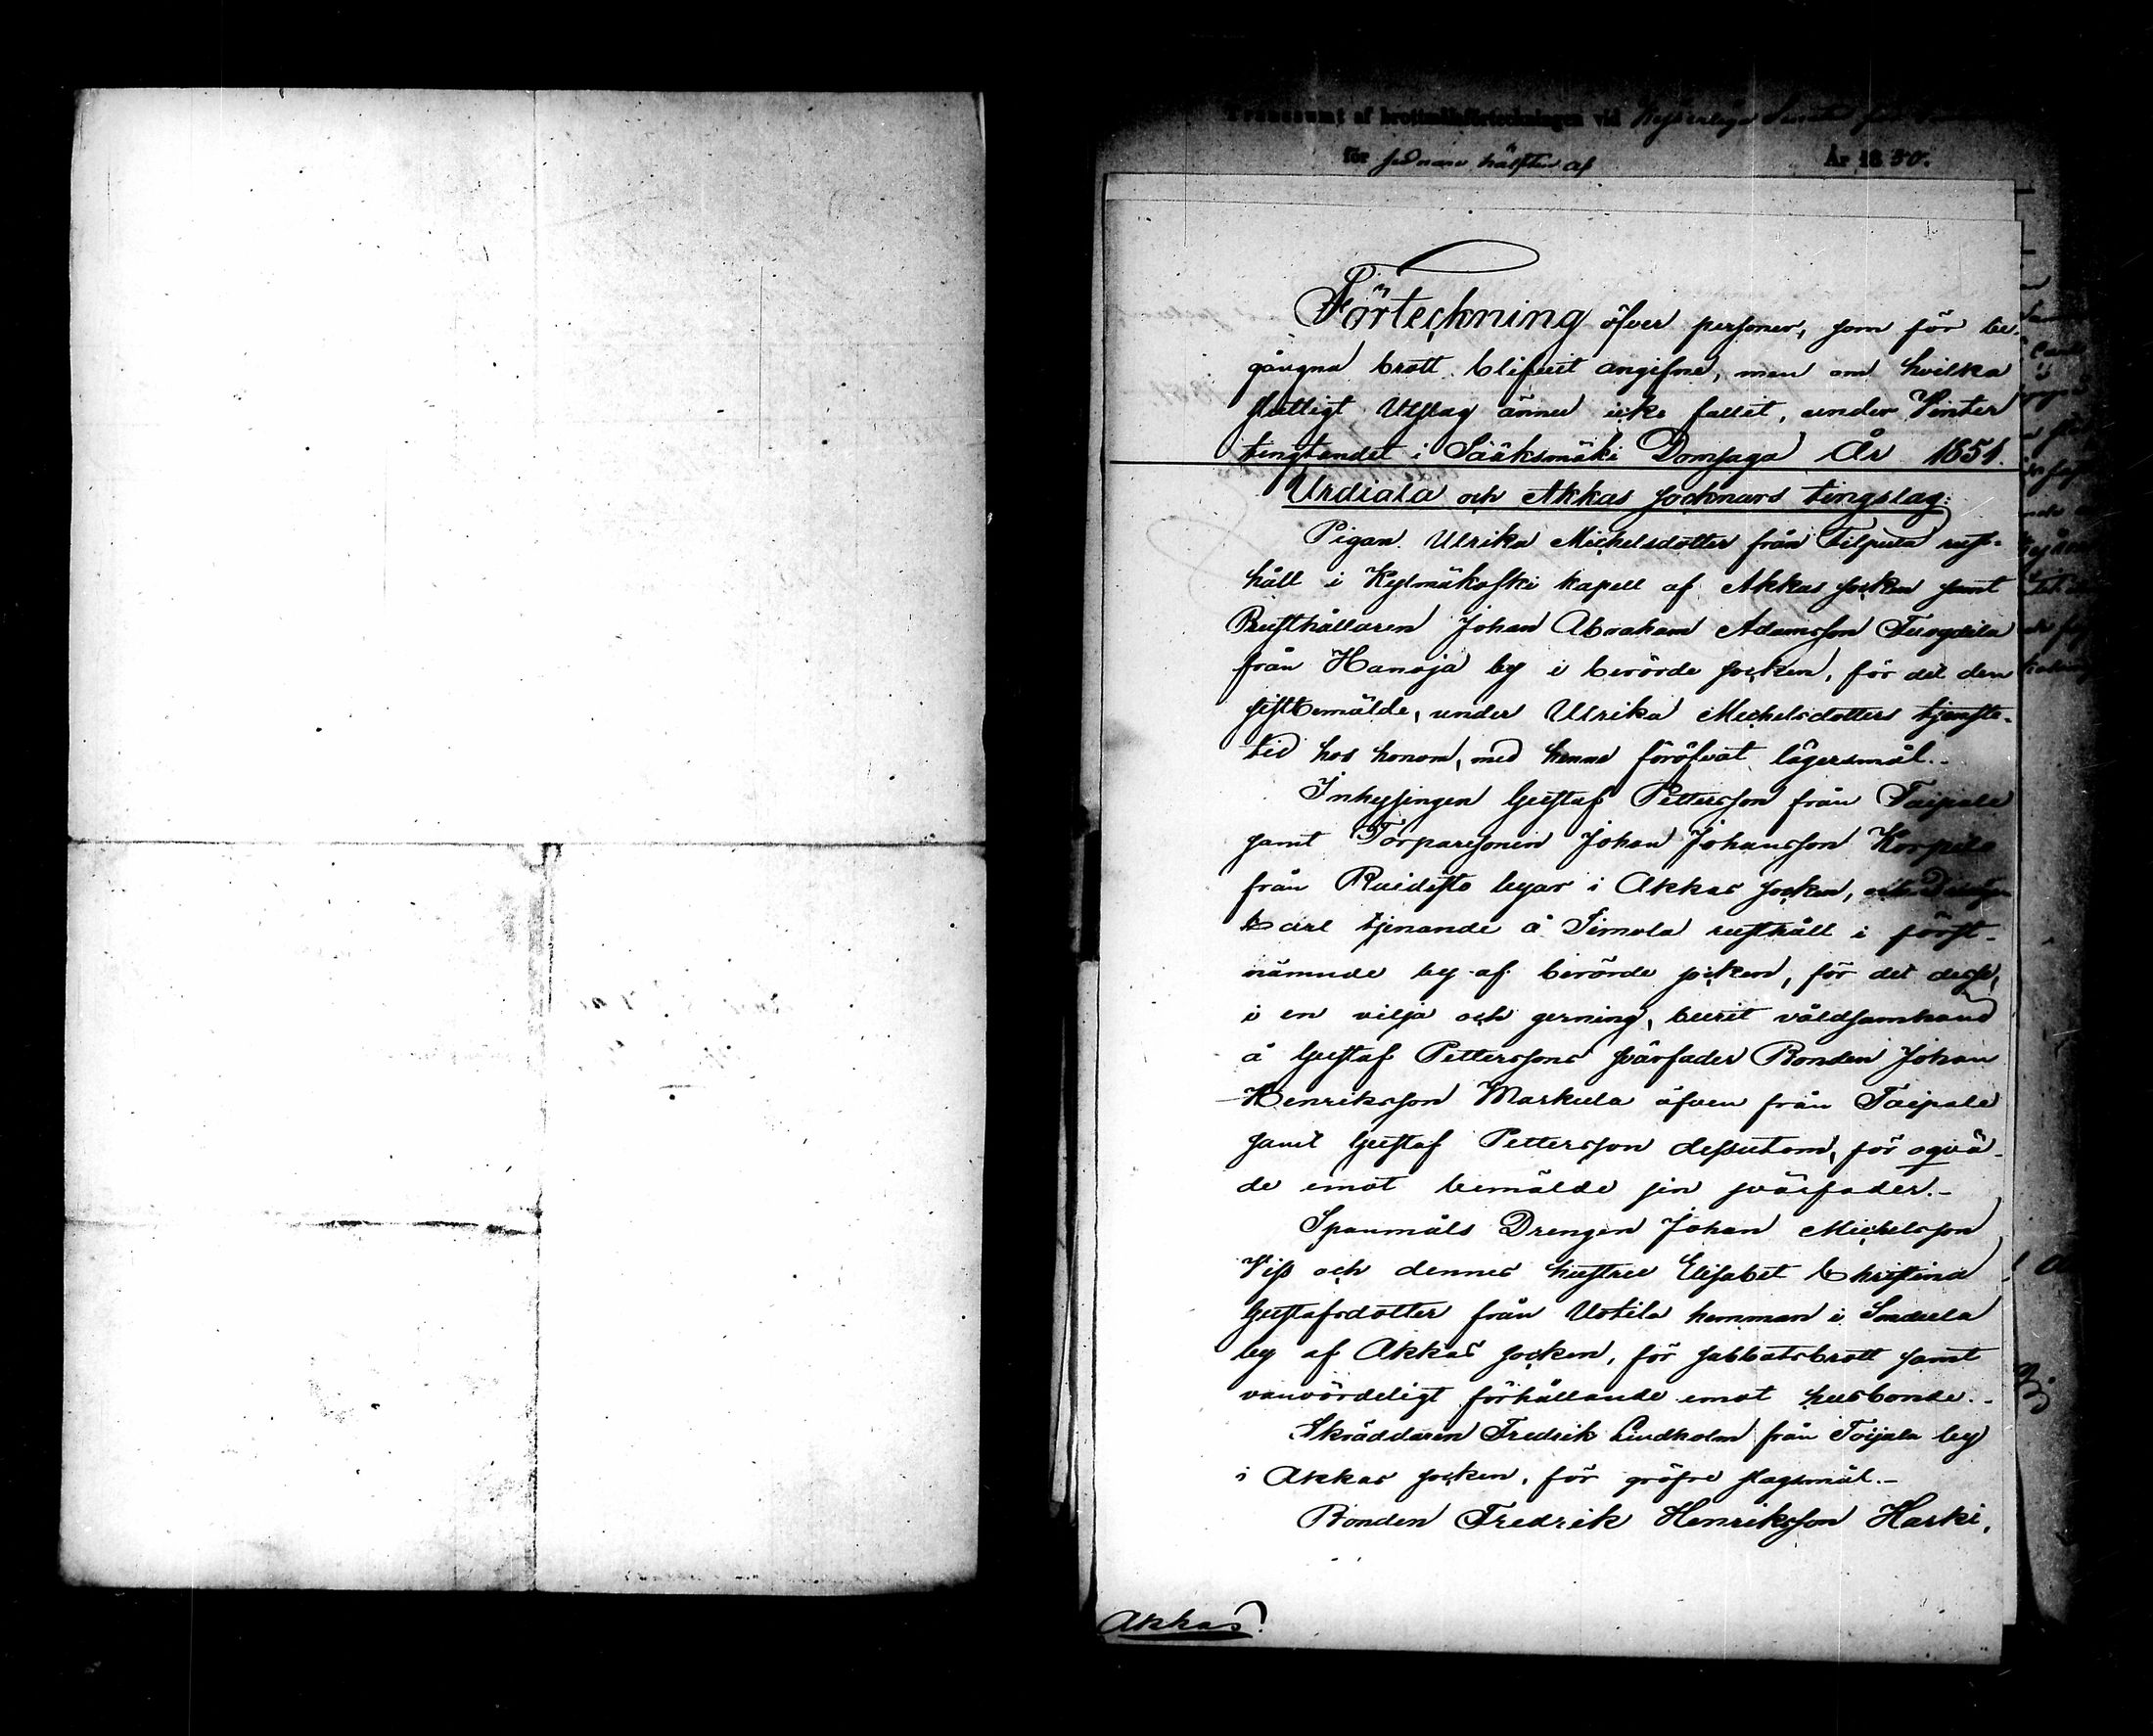 Transsumt af brottmålsförteckningen vid Kejserliga Senaten för
för sednare hälften af År 1850.
Förteckning öfver personer, som för be-
gångna brott blifvit angifne, men om hvilka
slutligt Utslag ännu icke fallit, under Vinter
tingtandet i Sääksmäki Domsaga År 1851.
Urdiala och Akkas socknars tingslag:
Pigan Ulrika Michelsdotter från Tilpula rust-
håll i Kylmäkoski kapell af Akkas socken samt
Rusthållaren Johan Abraham Adamsson Tuogdila
från Hanoja by i berörde socken, för det den
sistbemälde, under Ulrika Michelsdotters tjenste-
tid hos honom, med henne föröfvat lägersmål.-
Inhysingen Gustaf Pettersson från Taipale
samt Torparesonen Johan Johansson Korpila
från Ruidesto byar i Akkas socken,
Carl tjenande å Simola rusthåll i först-
nämnde by af berörde socken, för det desse,
i en vilja och gerning, burit våldsamhand
å Gustaf Petterssons svärfader Bonden Johan
Henriksson Markula äfven från Taipale
samt Gustaf Pettersson dessutom, för oqvä-
de emot bemälde sin svärfader.-
Spanmåls Drengen Johan Michelsson
Viss och dennes hustru Elisabet Christina
Gustafsdotter från Uotila hemman i Sondula
by af Akkas socken, för sabbatsbrott samt
vanvördeligt förhållande emot husbonde.-
Skräddaren Fredrik Lindholm från Toijala by
i Akkas socken, för gröfre slagsmål.-
Bonden Fredrik Henriksson Harki,
Akkas.